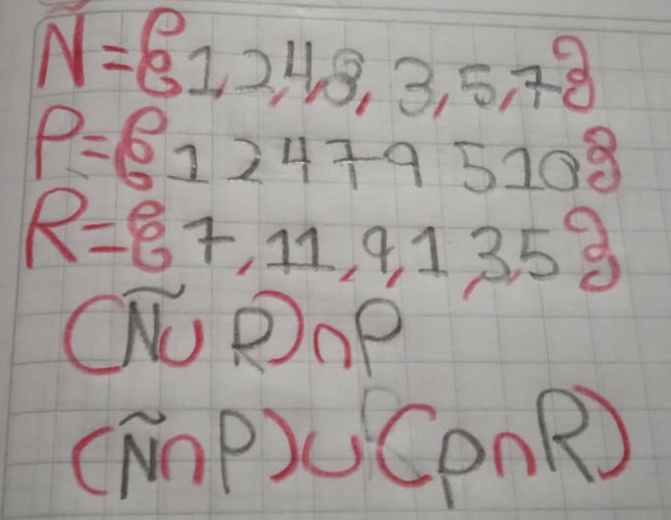 N={1,2,4,8, 3,5,7}
P={1 2 4 7 9 5 10}
R={7,11,9,1,3,5}
(Ñ∪ R)∩P
(Ñ∩P)∪(P∩R)